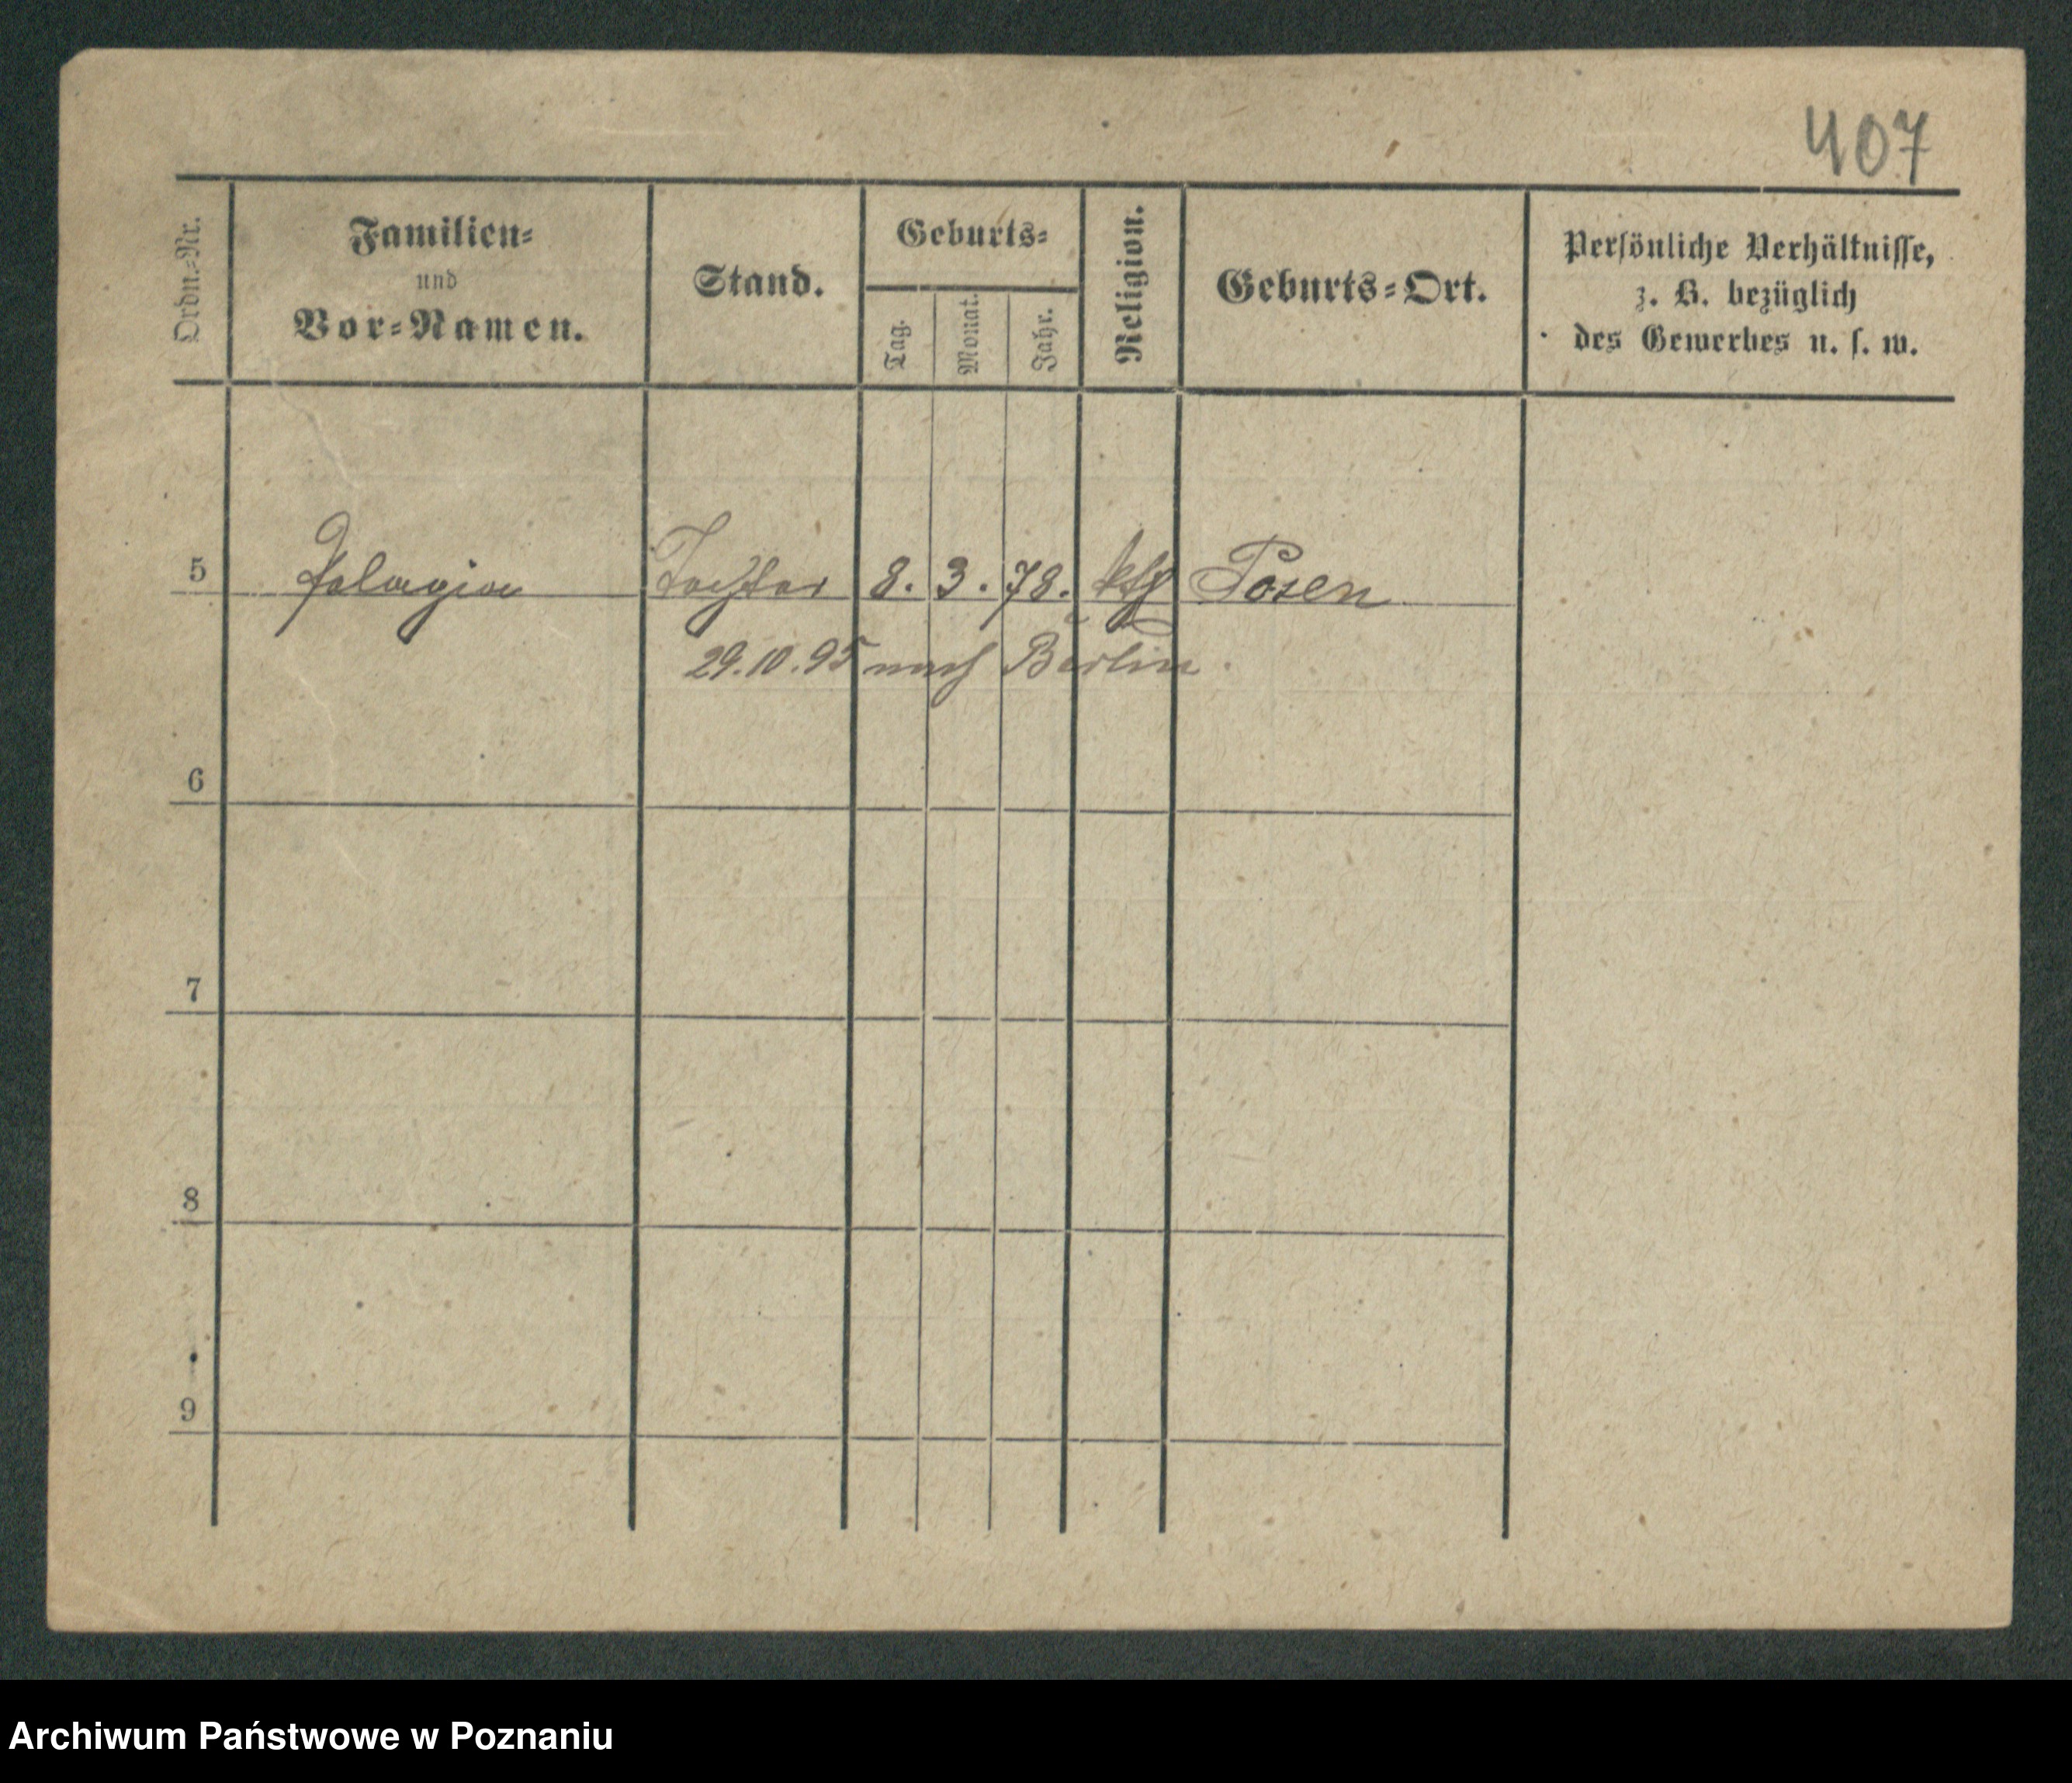 407
Ordn.-Nr.
Familien-
und
Vor-Namen.
Stand.
Geburts-
Tag.
Monat.
Jahr.
Religion.
Geburts-Ort.
Persönliche Verhältnisse,
z. B. bezüglich
des Gewerbes u. s. w.
5 Pelagia Tochter 8. 3. 78. kth Posen
29.10.95 nach Berlin.
6
7
8
9
Archiwum Państwowe w Poznaniu